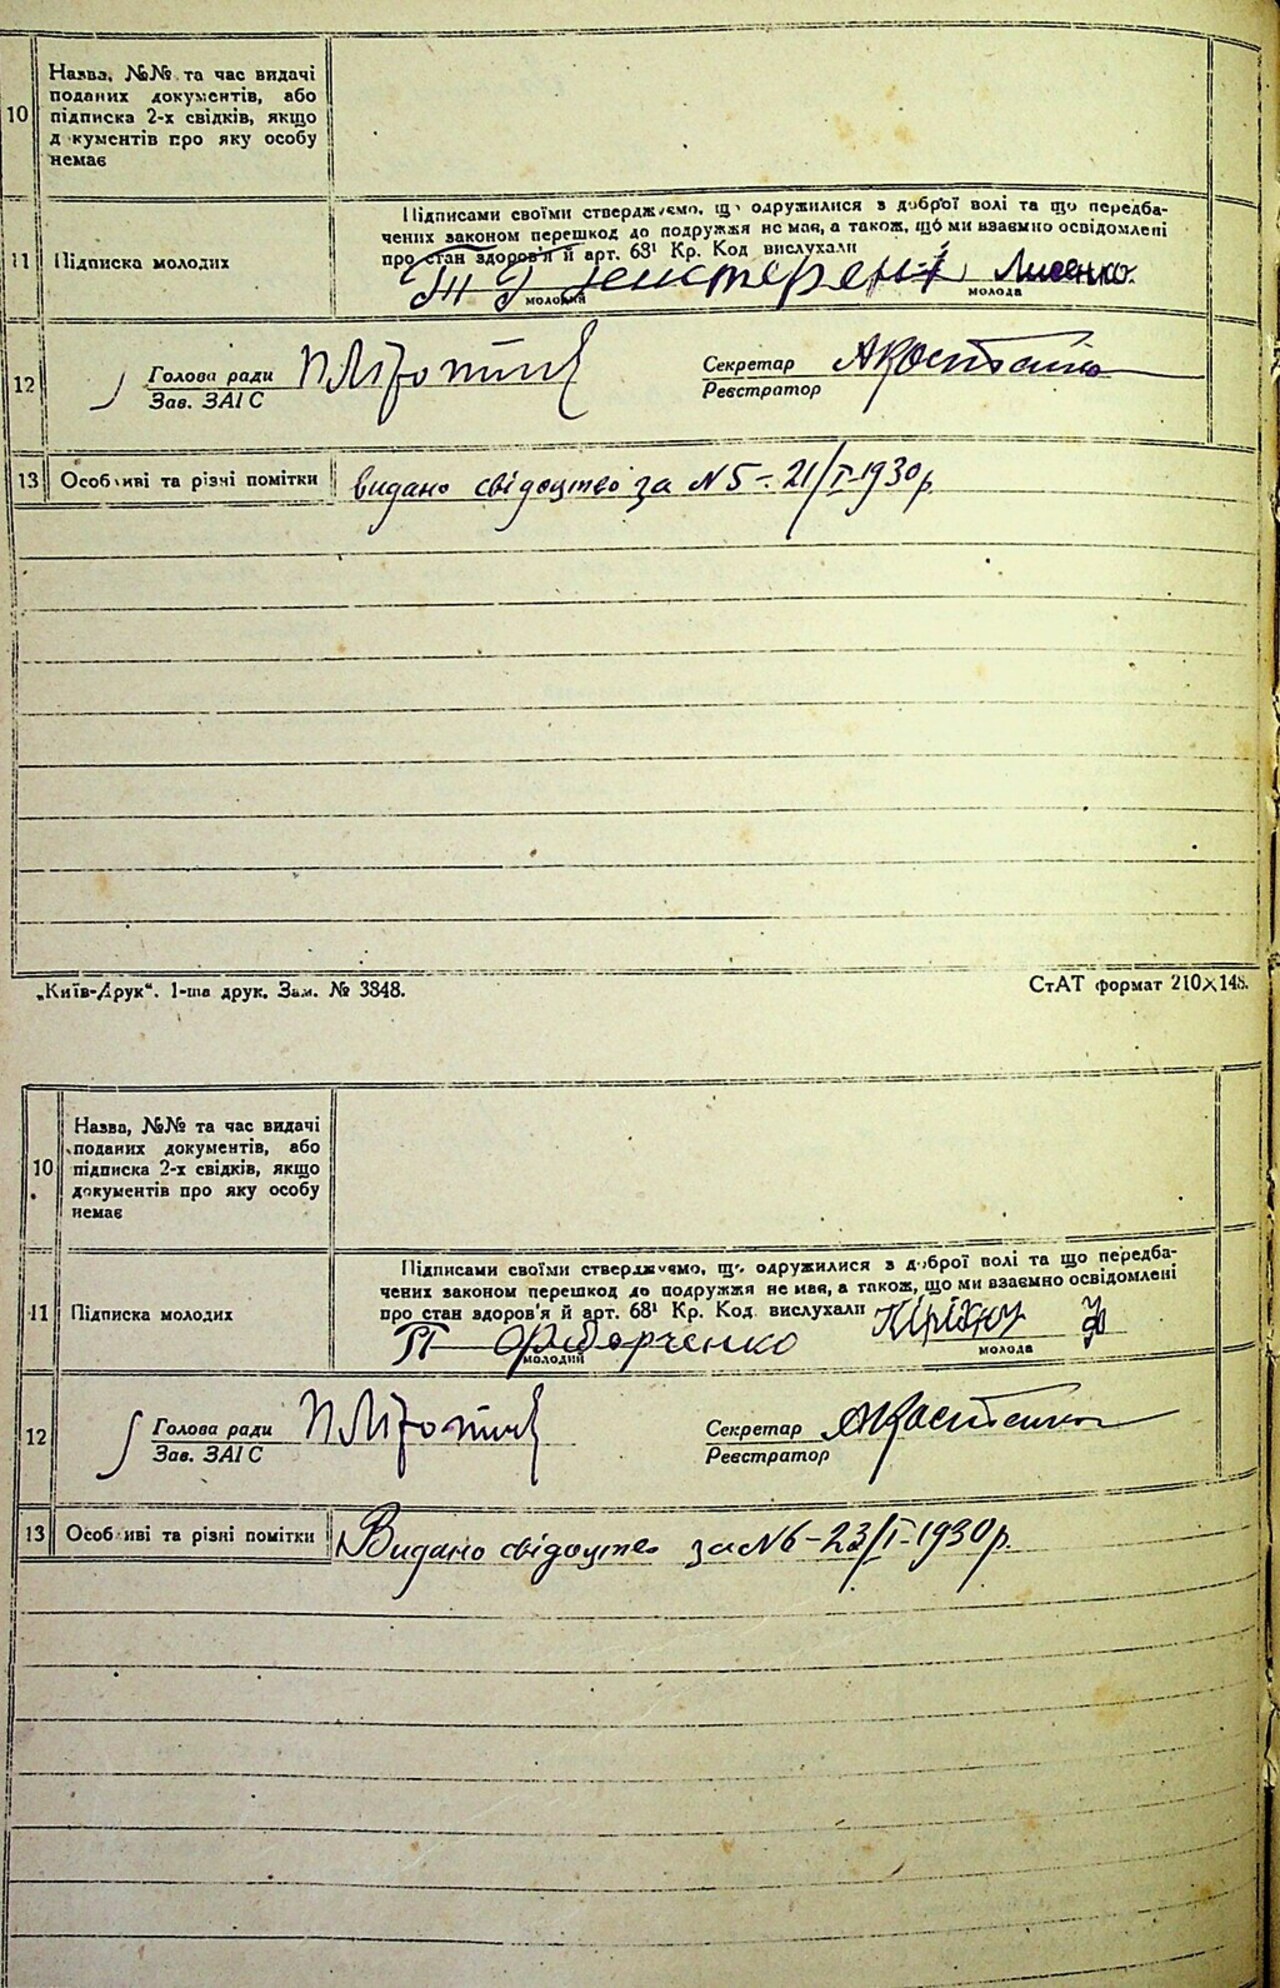 10
Назва, №№ та час видачі
поданих документів, або
підписка 2-х свідків, якщо
д кументів про яку особу
немає
Підписами своїми стверджуємо, щ одружилися з доброї волі та що передба-
чених законом перешкод до подружжя не мая, а також, що ми взаємно освідомлені
11 Підписка молодих
про стан здоров'я й арт. 68¹ Кр. Код вислухали
Лисенко.
молодий молода
12
Голова ради Секретар
Зав. ЗАГС Реєстратор
13 Особ иві та різні помітки видано свідоцтво за N 5 - 21/I-1930р.
„Київ-Друк“. 1-ша друк. Зам. № 3848. СтАТ формат 210×148.
10
Назва, №№ та час видачі
поданих документів, або
підписка 2-х свідків, якщо
документів про яку особу
немає
Підписами своїми стверджуємо, щ одружилися з доброї волі та що передба-
чених законом перешкод до подружжя не мая, а також, що ми взаємно освідомлені
11 Підписка молодих
про стан здоров'я й арт. 68¹ Кр. Код вислухали
молодий молода
12
Голова ради Секретар
Зав. ЗАГС Реєстратор
13 Особ иві та різні помітки Видано свідоцтво за N 6 - 23/I-1930р.